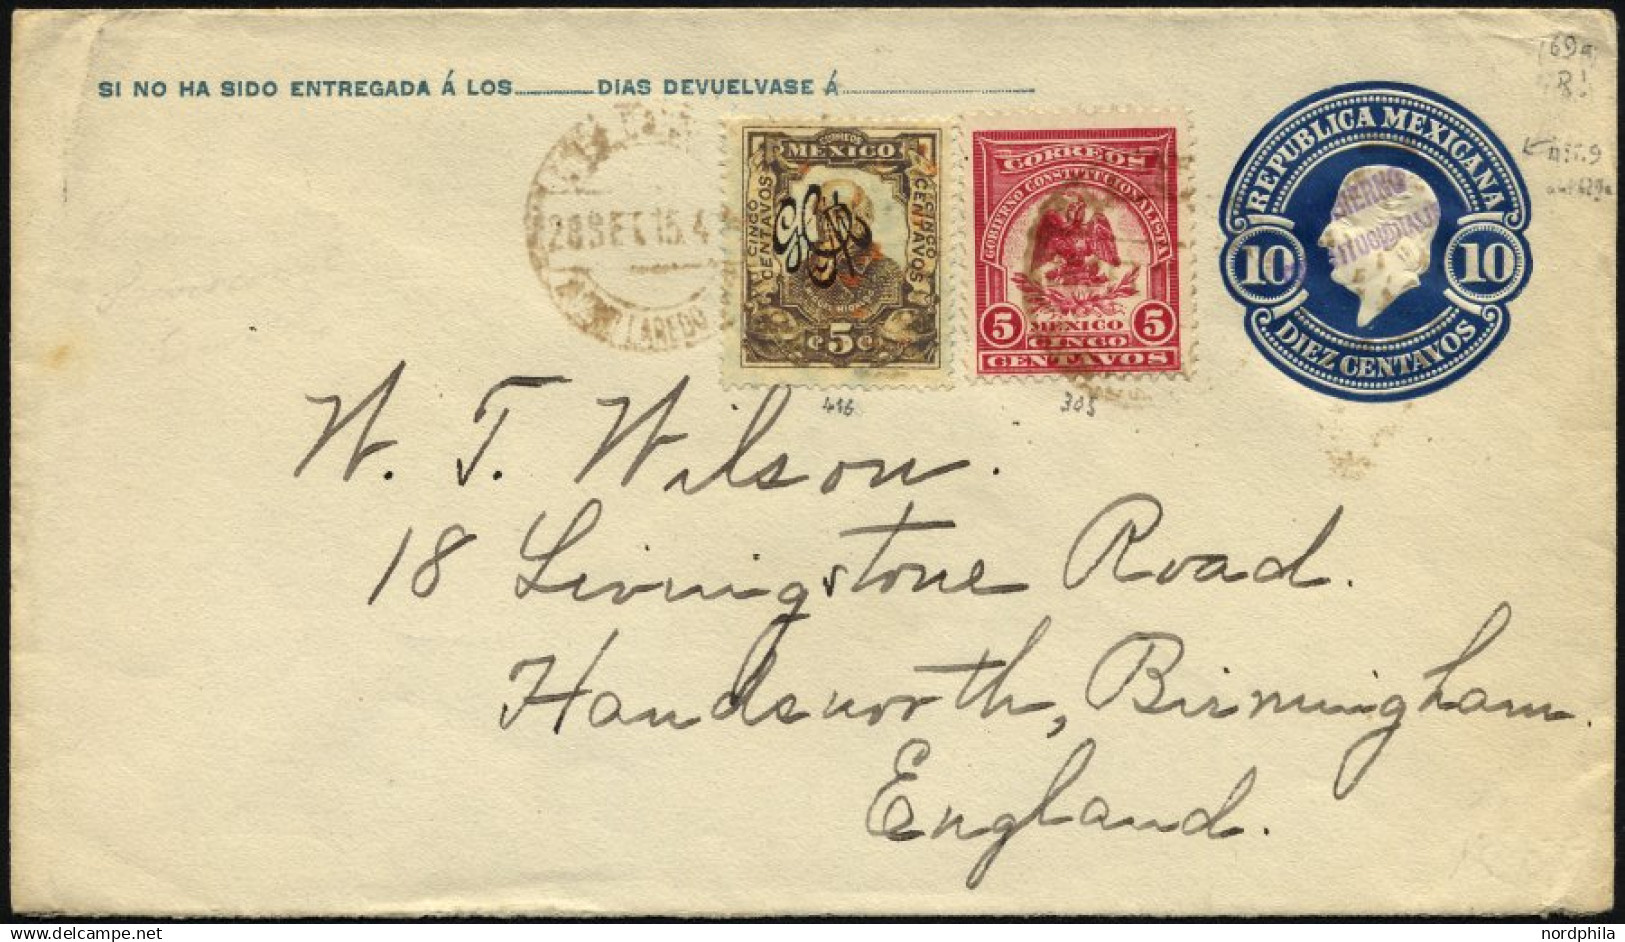 SI NO HA SIDO ENTREGADA Á LOS DIAS DEVUELVASE Á
28 SET 15. 4
LAREDO
CORREOS
MEXICO
CINCO CENTAVOS
CINCO CENTAVOS
¢5¢
CORREOS
GOBIERNO CONSTITUCIONALISTA
5 MEXICO 5
CINCO
CENTAVOS
REPUBLICA MEXICANA
10 10
DIEZ CENTAVOS
69a
416
305
W. T. Wilson.
18 Livingstone Road.
Handsworth, Birmingham.
England.
nordphila